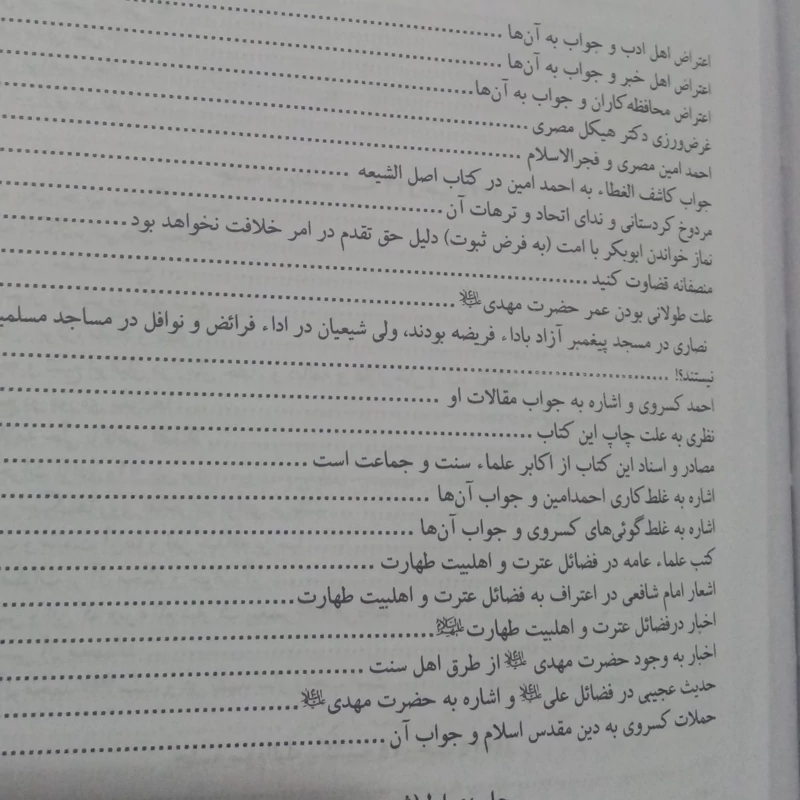 اعتراض اهل ادب و جواب به آن‌ها
اعتراض اهل خبر و جواب به آن‌ها
اعتراض محافظه‌کاران و جواب به آن‌ها
غرض‌ورزی دکتر هیکل مصری
احمد امین مصری و فجرالاسلام
جواب کاشف الغطاء به احمد امین در کتاب اصل الشیعه
مردوخ کردستانی و ندای اتحاد و ترهات آن
نماز خواندن ابوبکر با امت (به فرض ثبوت) دلیل حق تقدم در امر خلافت نخواهد بود
منصفانه قضاوت کنید
علت طولانی بودن عمر حضرت مهدی
نصاری در مسجد پیغمبر آزاد باداء فریضه بودند، ولی شیعیان در اداء فرائض و نوافل در مساجد
نیستند؟!
احمد کسروی و اشاره به جواب مقالات او
نظری به علت چاپ این کتاب
مصادر و اسناد این کتاب از اکابر علماء سنت و جماعت است
اشاره به غلط‌کاری احمدامین و جواب آن‌ها
اشاره به غلط‌گوئی‌های کسروی و جواب آن‌ها
کتب علماء عامه در فضائل عترت و اهلبیت طهارت
اشعار امام شافعی در اعتراف به فضائل عترت و اهلبیت طهارت
اخبار درفضائل عترت و اهلبیت طهارت
اخبار به وجود حضرت مهدی از طرق اهل سنت
حدیث عجیبی در فضائل علی و اشاره به حضرت مهدی
حملات کسروی به دین مقدس اسلام و جواب آن